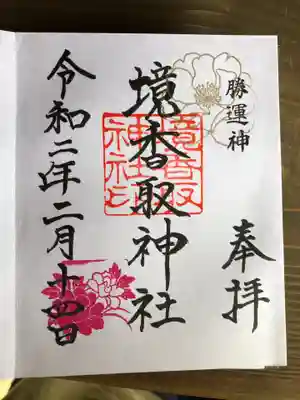 奉拝
勝運神
境香取神社
境香取
神社之印
令和二年二月十四日